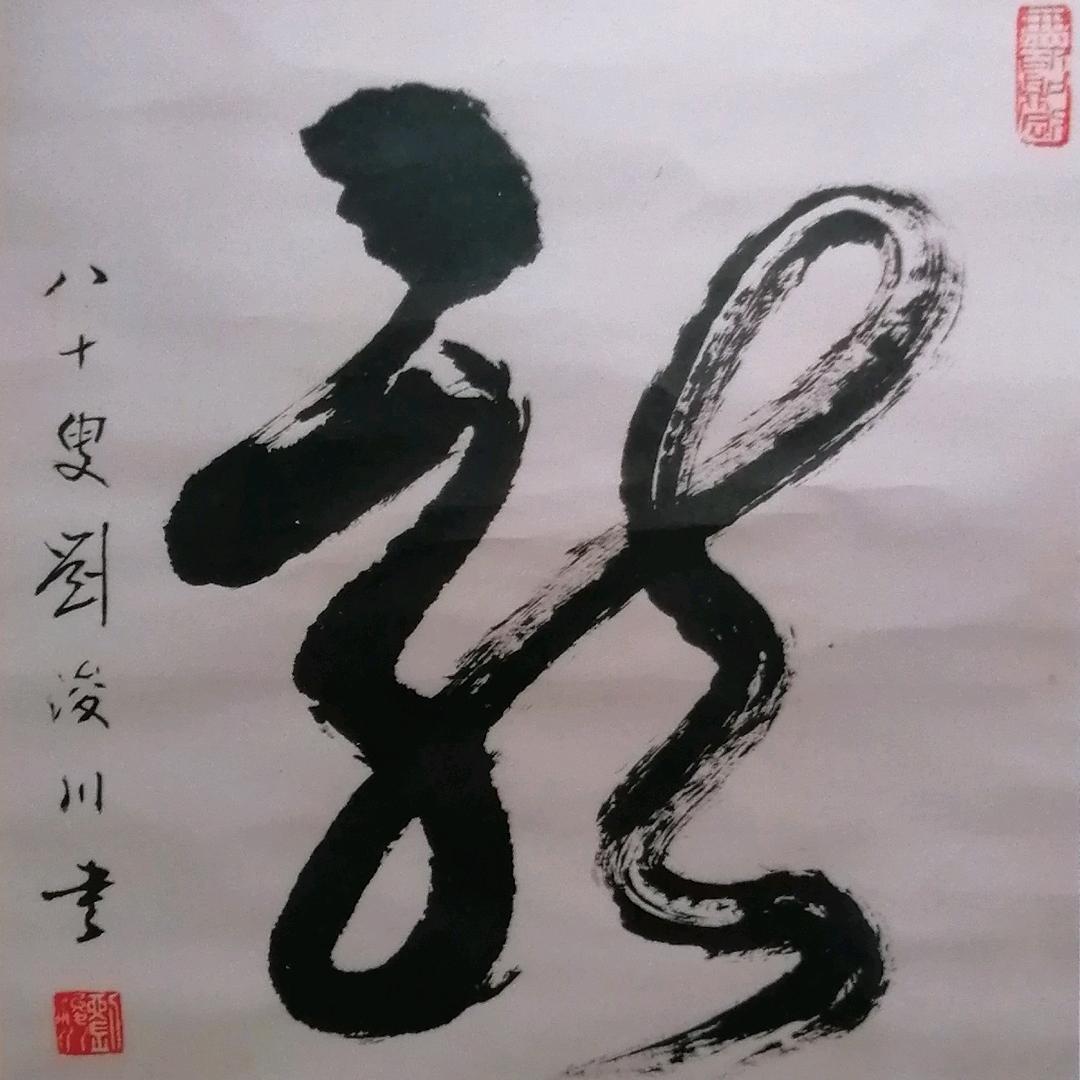 龍
八十叟劉浚川書